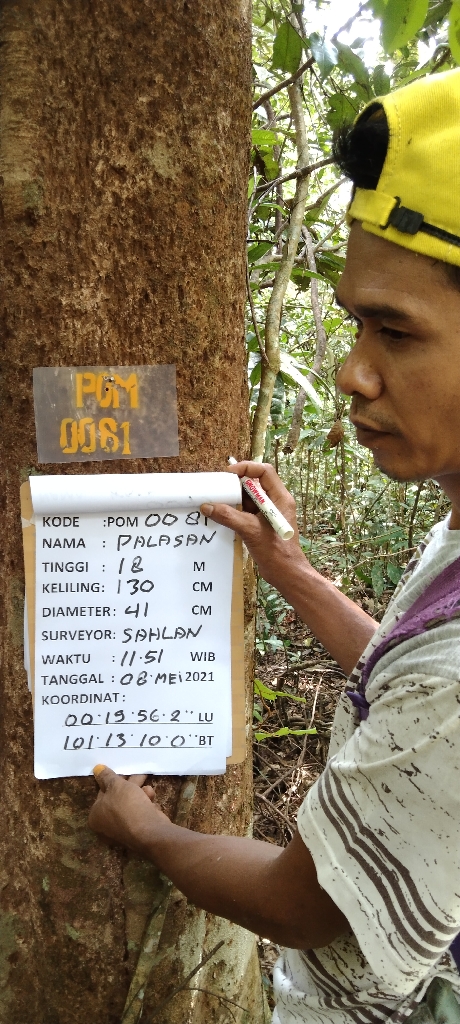 POM
0081
KODE :POM 0081
NAMA : PALASAN
TINGGI : 18 M
KELILING: 130 CM
DIAMETER: 41 CM
SURVEYOR: SAHLAN
WAKTU : 11.51 WIB
TANGGAL : 08 MEI 2021
KOORDINAT :
00.19.56.2" LU
101.13.10.0" BT
SNOWMAN